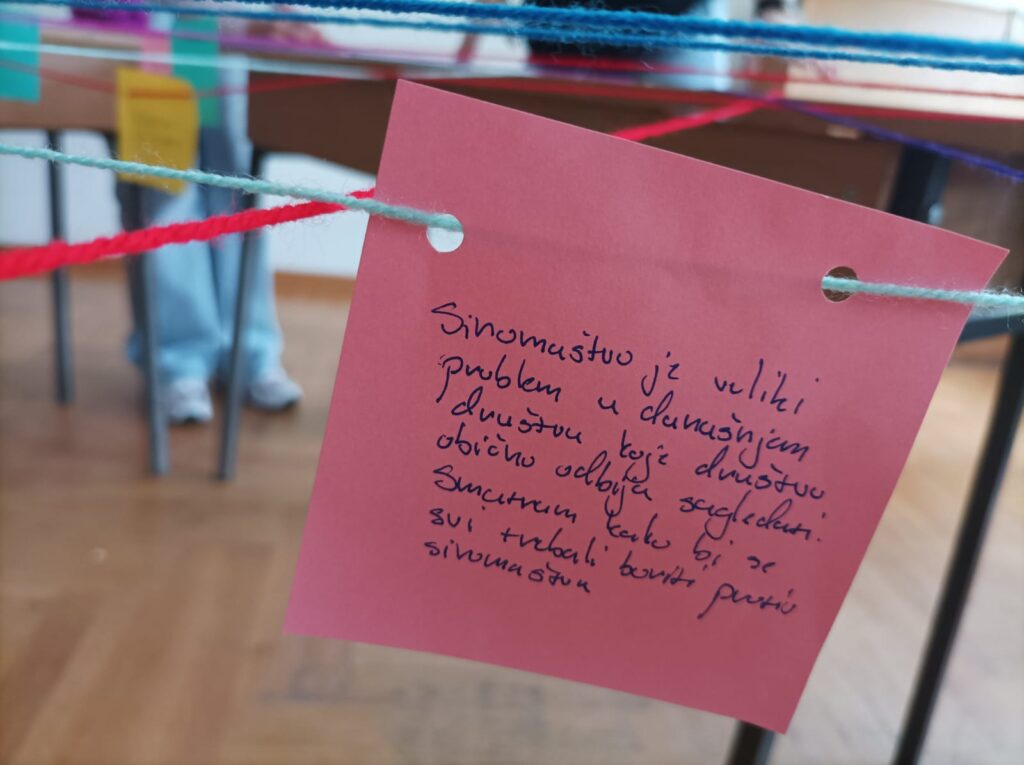 Siromaštvo je veliki
problem u današnjem
društvu koje društvo
obično odbija sagledati.
Smatram kako bi se
svi trebali boriti protiv
siromaštva